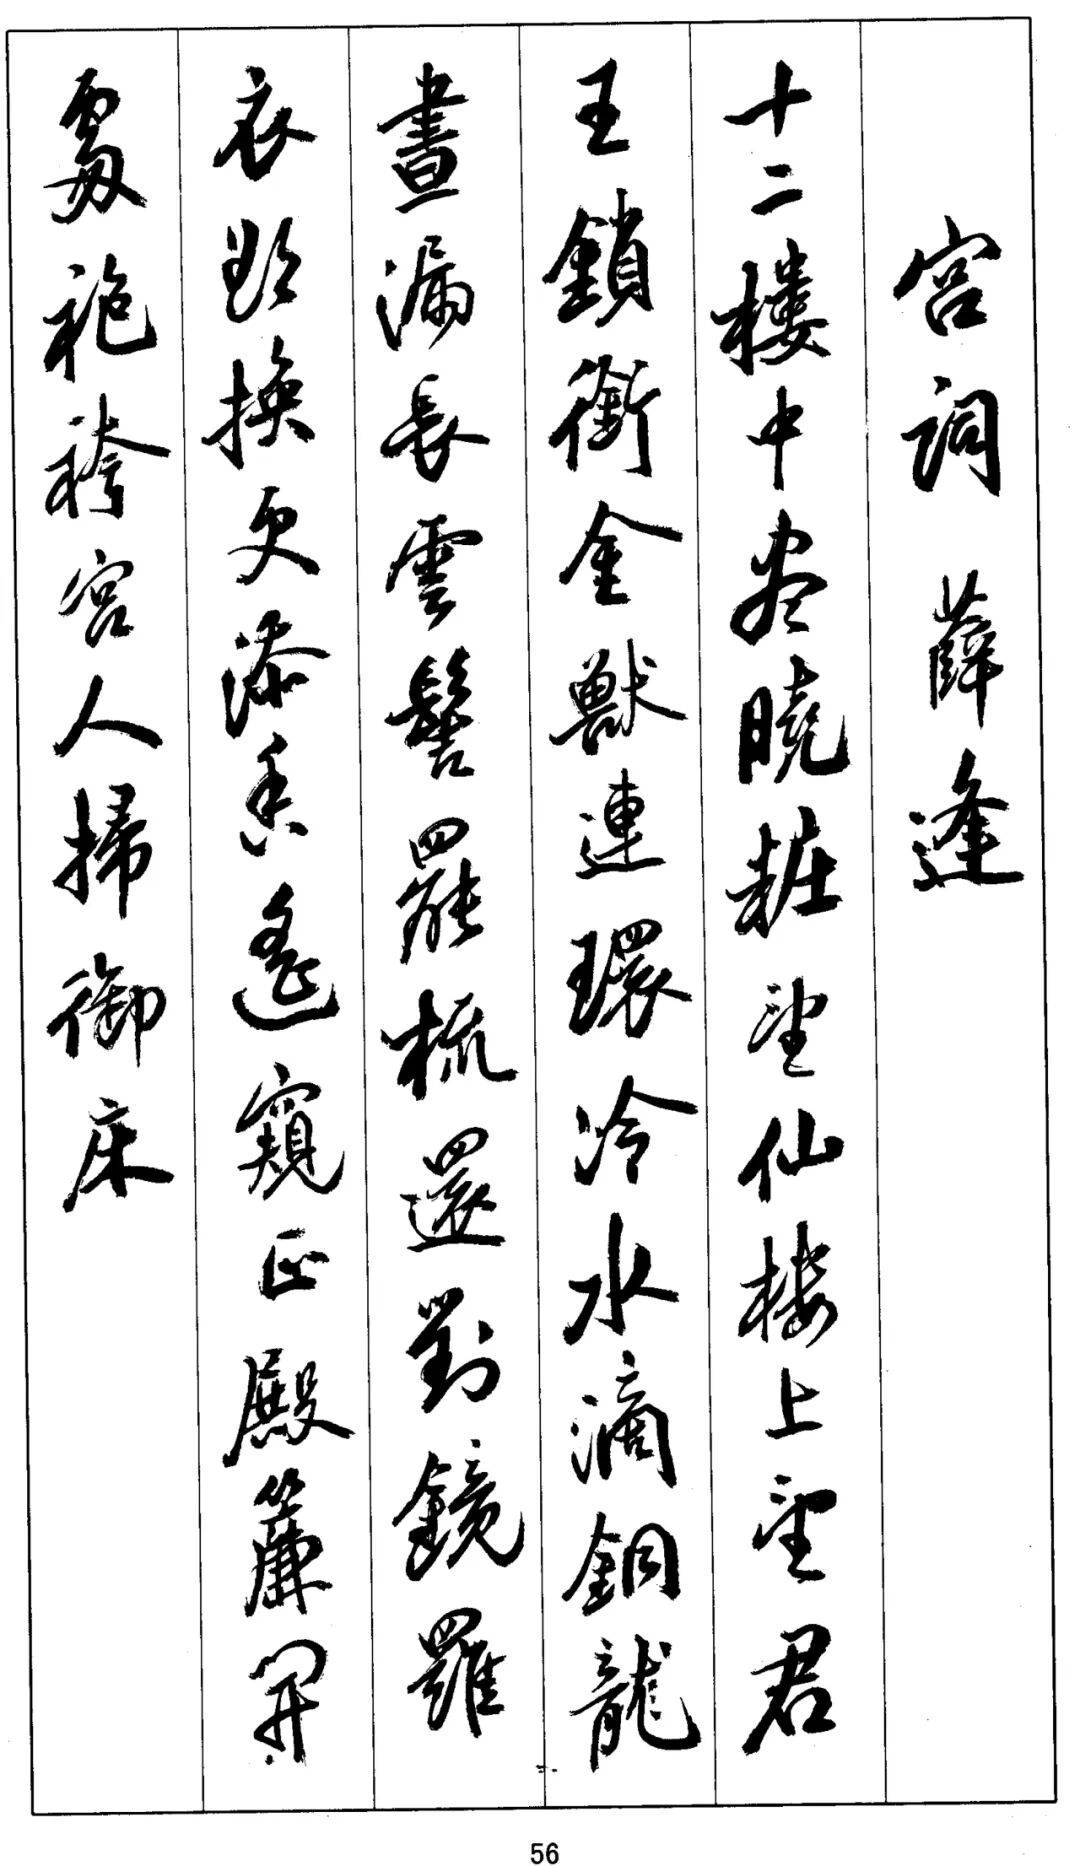 宫词 薛逢
十二楼中尽晓粧望仙楼上望君
王鎖衔金獸連環冷水滴銅龍
晝漏長雲髻罷梳還對鏡羅
衣欲換更添香遙窺正殿簾開
處袍袴宫人掃御床
56